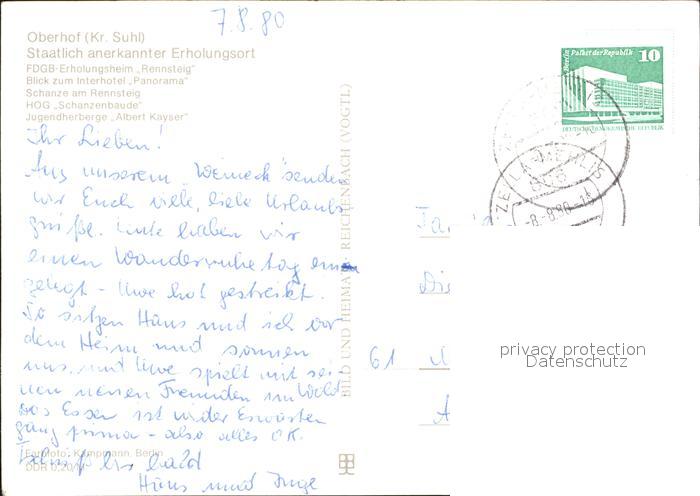 7.8.80
Oberhof (Kr. Suhl)
Staatlich anerkannter Erholungsort
FDGB-Erholungsheim „Rennsteig"
Blick zum Interhotel „Panorama"
Schanze am Rennsteig
HOG „Schanzenbaude"
Jugendherberge „Albert Kayser"
Ihr Lieben!
Aus unserem senden
wir Euch viele, liebe Urlaubs-
grüße. Heute haben wir
einen Wanderruhetag
gelegt - Uwe hat gestreikt.
So sitzen Hans und ich vor
dem Heim und sonnen
uns, und Uwe spielt mit sei-
nen neuen Freunden im Wald.
Das Essen ist in der
prima - also alles O.K.
Tschüß bis bald
Hans und Inge
Farbfoto: Kämpmann, Berlin
DDR 0,20
BILD UND HEIMAT REICHENBACH (VOGTL)
Berlin Palast der Republik 10
DEUTSCHE DEMOKRATISCHE REPUBLIK
ZELLA-MEHLIS
-8.-8.80
61
privacy protection
Datenschutz